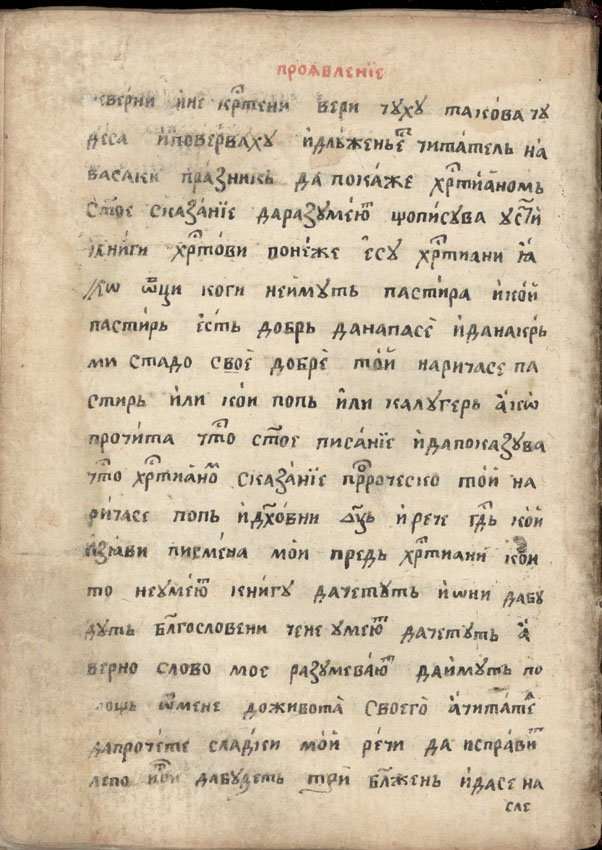 проѧвленїе
неверни и̂не кр҃тени вери чуху такова чу
деса и҆поверваху и҆длъженьест҃ читатель на
васаки празникь да покаже хр҃тиѧномь
ст҃ое сказанїе даразумеют҃ щописува уст҃и
книги хр҃тови понеже е҆су хр҃тиани ꙗ
ко ѡв҃ци коги неимуть пастира и҆кои
пастирь есть добрь данапасе и҆данакрь
ми стадо свое добре тои наричасе па
стирь и҆ли кои попь и҆ли калугерь акѡ
прочита что ст҃ое писанїе и҆дапоказува
что хр҃тиѧном҃ сказанїе пр҃роческо тои на
ричасе попь и҆дх҃овни ѡц҃ь и҆рече гд҃ь кои
изꙗви писмена мои предь хр҃тиани кои
то неумеют҃ книгу дачетуть и҆ѡни дабу
дуть бл҃гословени чене умеют҃ дачетуть а
верно слово мое разумевают҃ даимуть по
мощь ѡт҃мене доживота своего ачитател҃
дапрочете сладки мои речи да исправит҃
лепо и҆тои дабудеть трїи бл҃жень и҆дасе на
сле